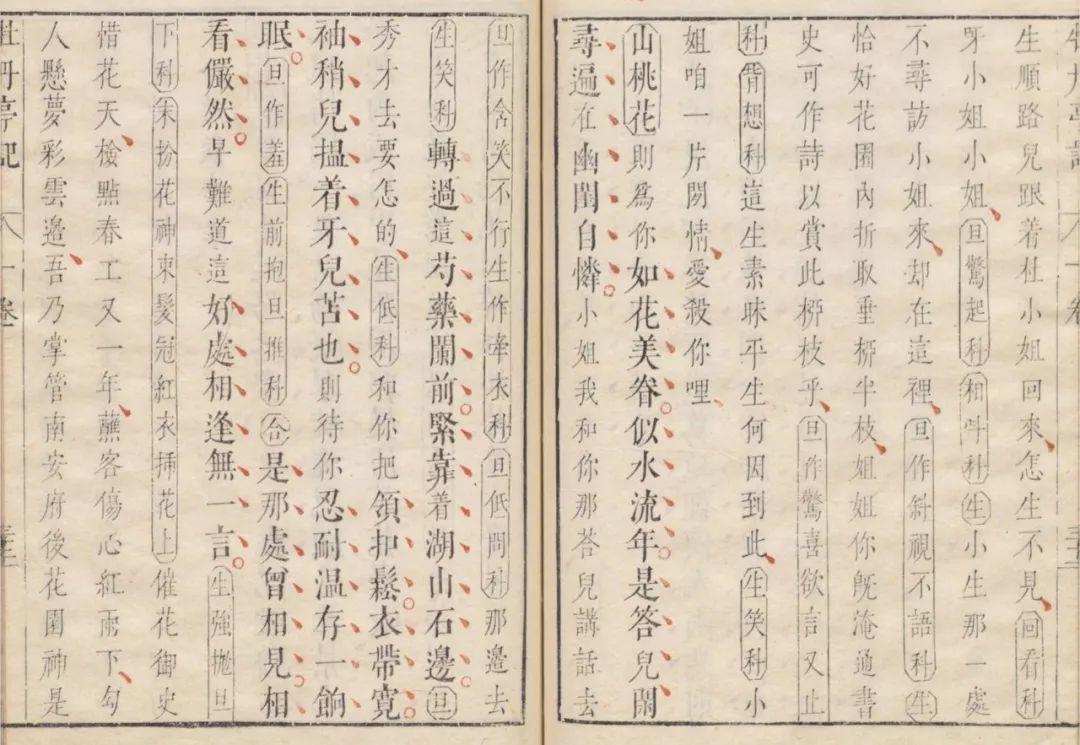 生順路兒跟着杜小姐回來怎生不見回看科
呀小姐小姐旦驚起科相呌科生小生那一處
不尋訪小姐來却在這裡旦作斜視不語科生
恰好花園內折取垂桺半枝姐姐你旣淹通書
史可作詩以賞此桺枝乎旦作驚喜欲言又止
科背想科這生素昧平生何因到此生笑科小
姐咱一片閒情愛殺你哩
山桃花則爲你如花美眷似水流年是答兒閒
尋遍在幽閨自憐小姐我和你那荅兒講話去
旦作含笑不行生作牽衣科旦低問科那邊去
生笑科轉過這芍藥闌前緊靠着湖山石邊旦
秀才去要怎的生低科和你把領扣鬆衣帶寬
袖稍兒揾着牙兒苫也則待你忍耐温存一餉
眠旦作羞生前抱旦推科合是那處曾相見相
看儼然早難道這好處相逢無一言生強抱旦
下科末扮花神束髮冠紅衣揷花上催花御史
惜花天檢點春工又一年蘸客傷心紅雨下勾
人懸夢彩雲邊吾乃掌管南安府後花園神是
牡丹亭記 卷一